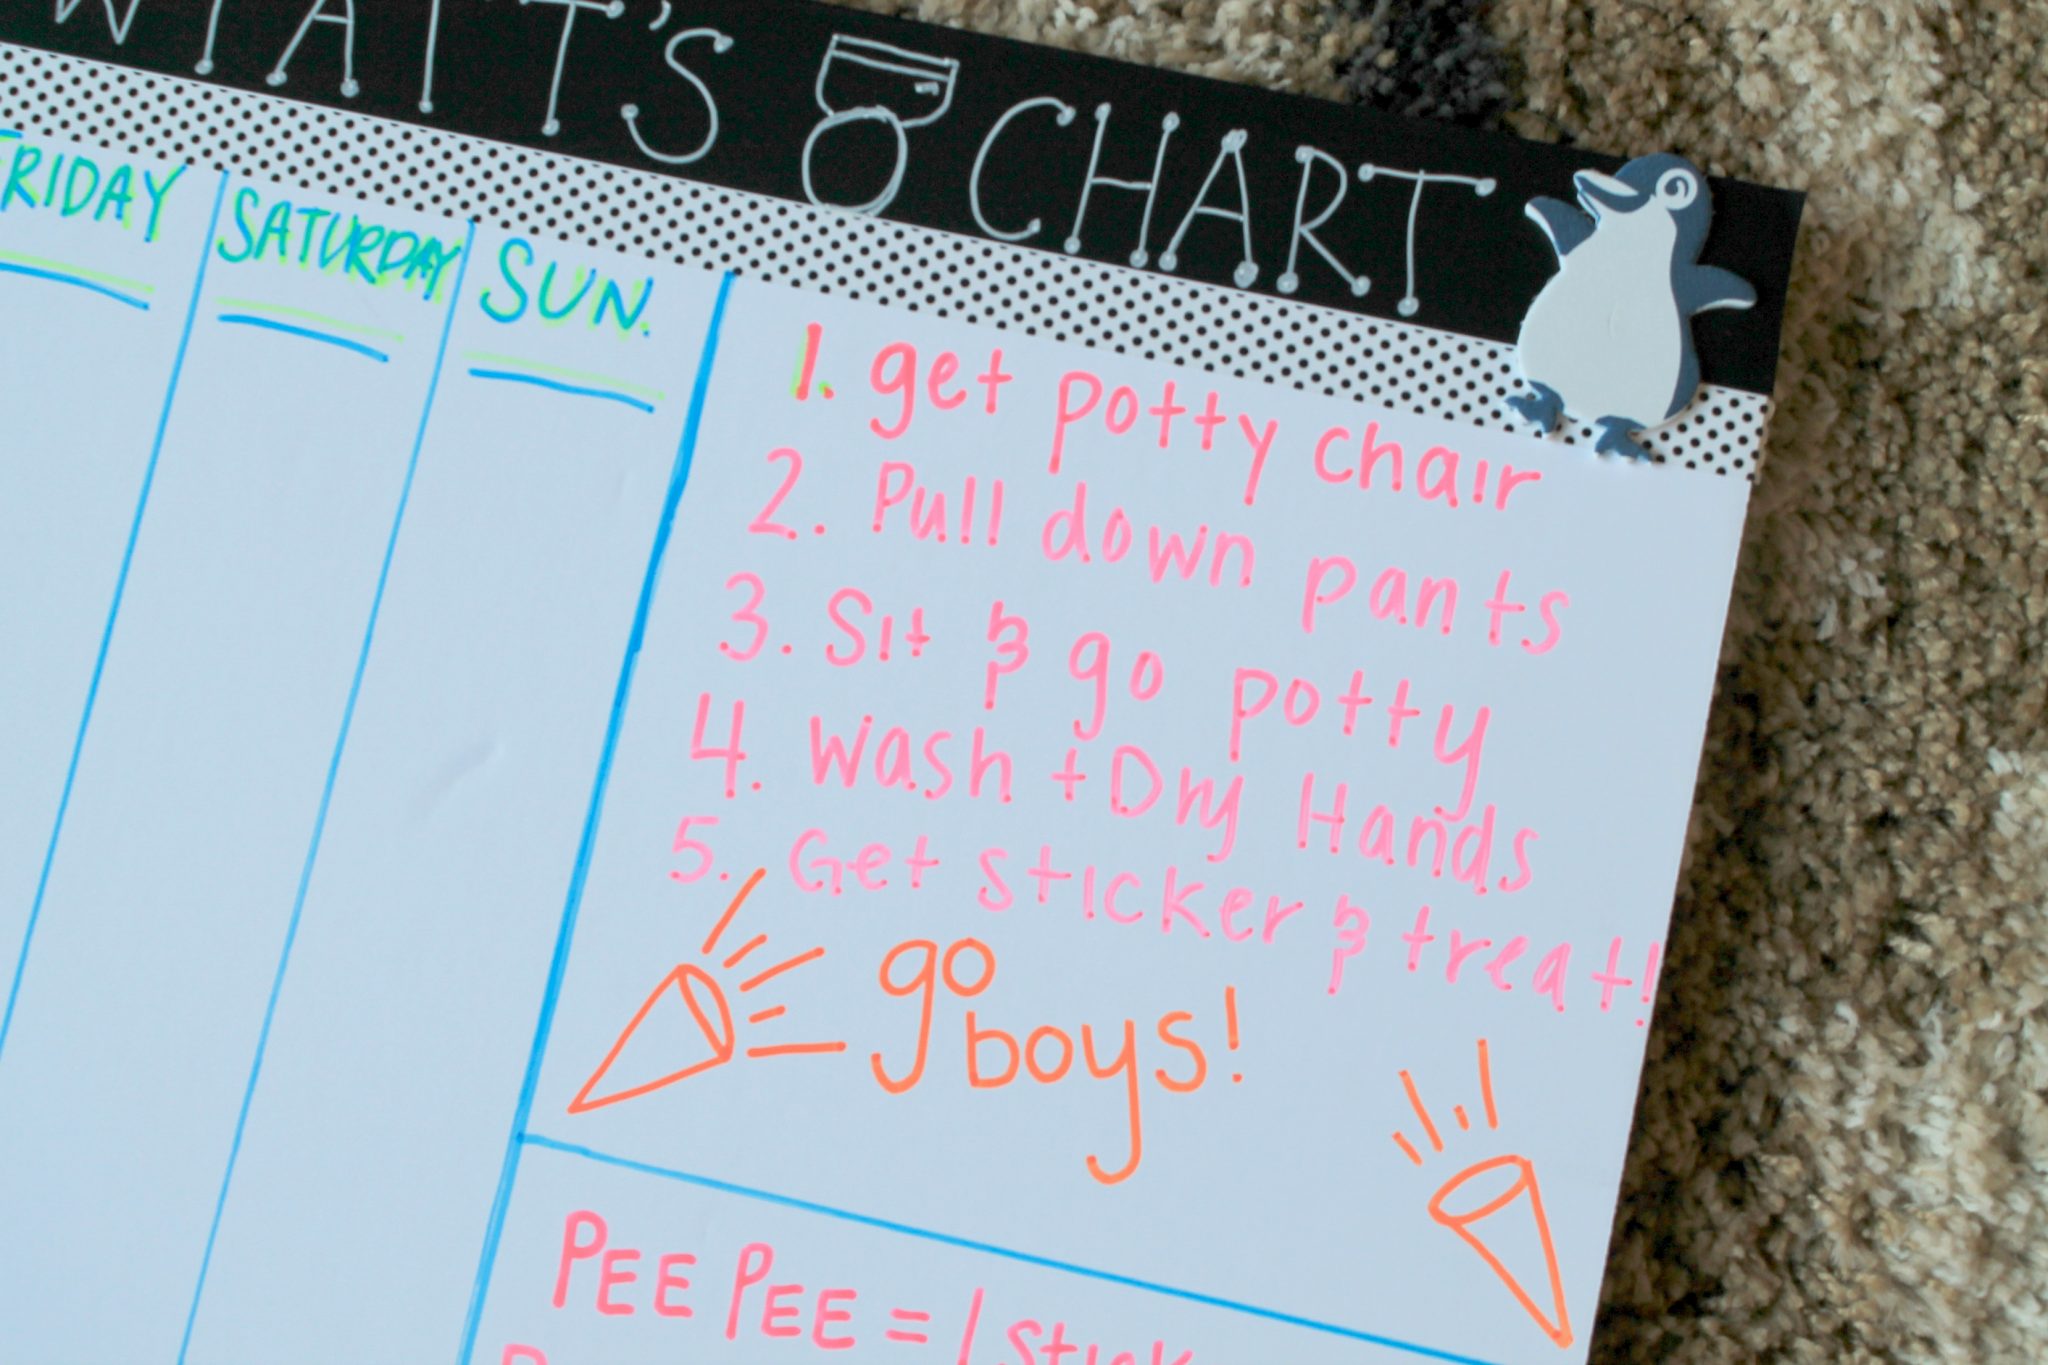 WYATT'S CHART
FRIDAY SATURDAY SUN.
1. get potty chair
2. Pull down pants
3. Sit & go potty
4. Wash + Dry Hands
5. Get sticker & treat!
go
boys!
PEE PEE = 1 Stick